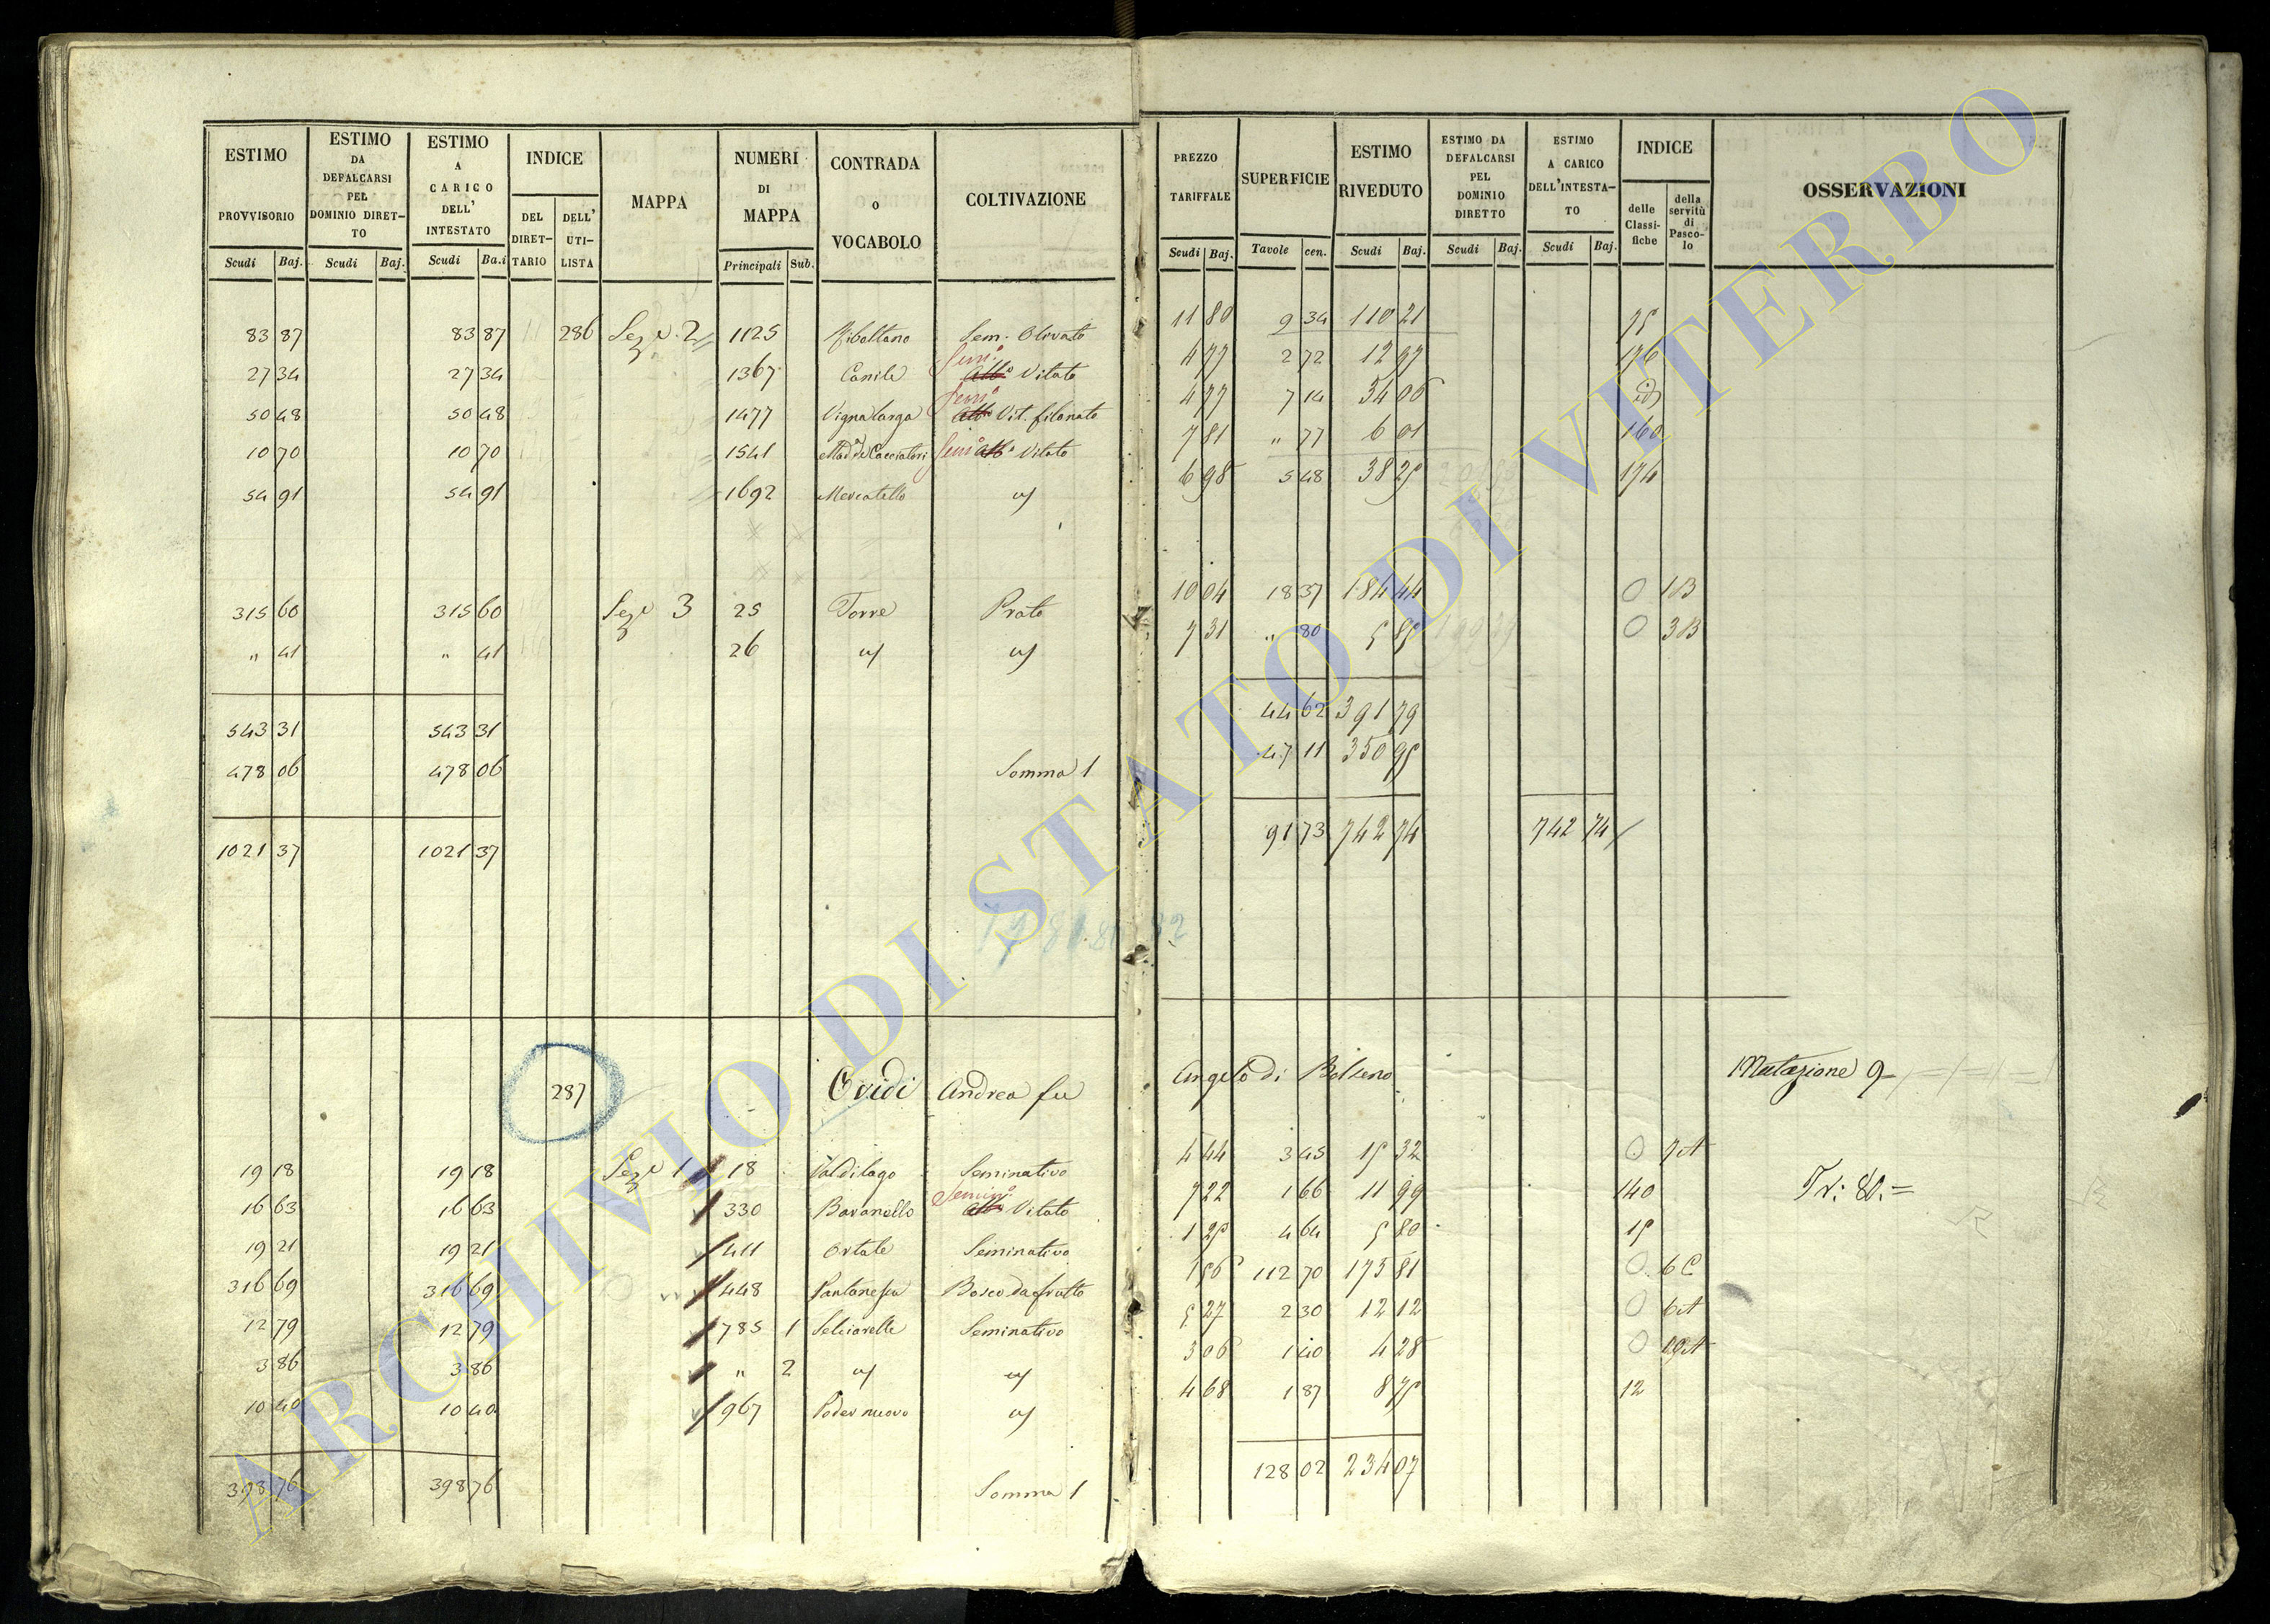 ESTIMO PROVVISORIO Scudi Baj.
ESTIMO DA DEFALCARSI PEL DOMINIO DIRET- TO Scudi Baj.
ESTIMO A CARICO DELL' INTESTATO Scudi Ba.i
INDICE DEL DIRET- TARIO DELL' UTI- LISTA
MAPPA
NUMERI DI MAPPA Principali Sub.
CONTRADA o VOCABOLO
COLTIVAZIONE
PREZZO TARIFFALE Scudi Baj.
SUPERFICIE Tavole cen.
ESTIMO RIVEDUTO Scudi Baj.
ESTIMO DA DEFALCARSI PEL DOMINIO DIRETTO Scudi Baj.
ESTIMO A CARICO DELL'INTESTA- TO Scudi Baj.
INDICE delle Classi- fiche della servitù di Pasco- lo
OSSERVAZIONI
83 87 83 87 286 Sez.e 2 1125 Sem. Olivato 11 80 9 34 110 21 75
27 34 27 34 1367 Canile Sem.o Vitato 4 77 2 72 12 97 176
50 48 50 48 1477 Vigna larga Sem.o Vit. filonato 4 77 7 14 34 06 id
10 70 10 70 1541 Mad.a de Cacciatori Sem.o Vitato 7 81 " 77 6 01 160
54 91 54 91 1692 Mercatello 6 98 5 48 38 25 174
315 60 315 60 Sez.e 3 25 Torre Prato 10 04 18 37 184 44 0 1B
" 41 " 41 26 7 31 " 80 5 85 0 3B
543 31 543 31 44 62 391 79
478 06 478 06 Somma 1 47 11 350 95
1021 37 1021 37 91 73 742 74 742 74
287 Ovidi Andrea fu Angelo di Bolseno Mutazione 9
19 18 19 18 Sez.e 1 18 Valdilago Seminativo 4 44 3 45 15 32 0 7A
16 63 16 63 330 Baranello Semin.o Vitato 7 22 1 66 11 99 140 Tr: 80.=
19 21 19 21 411 Ortale Seminativo 1 25 4 64 5 80 15
316 69 316 69 448 Pantanesca Bosco da frutto 1 56 112 70 175 81 0 6C
12 79 12 79 785 1 Selciarelle Seminativo 5 27 2 30 12 12 0 6A
3 86 3 86 " 2 3 06 1 40 4 28 0 19A
10 40 10 40 967 Poder nuovo 4 68 1 87 8 75 12
398 76 398 76 Somma 1 128 02 234 07
ARCHIVIO DI STATO DI VITERBO